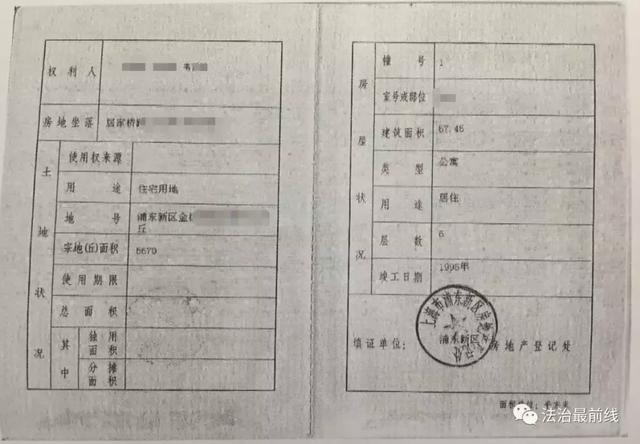 权利人
房地坐落 居家桥路
土地状况
使用权来源
用途 住宅用地
地号 浦东新区金
丘
宗地(丘)面积 5670
使用期限
总面积
其中
独用面积
分摊面积
房屋状况
幢号 1
室号或部位
建筑面积 57.46
类型 公寓
用途 居住
层数 6
竣工日期 1995年
填证单位: 浦东新区 房地产登记处
上海市浦东新区
面积单位:平方米
法治最前线